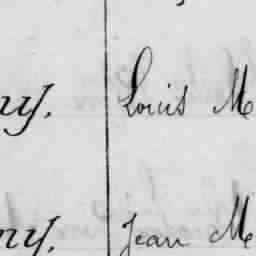 ny. Louis M
ny. Jean M